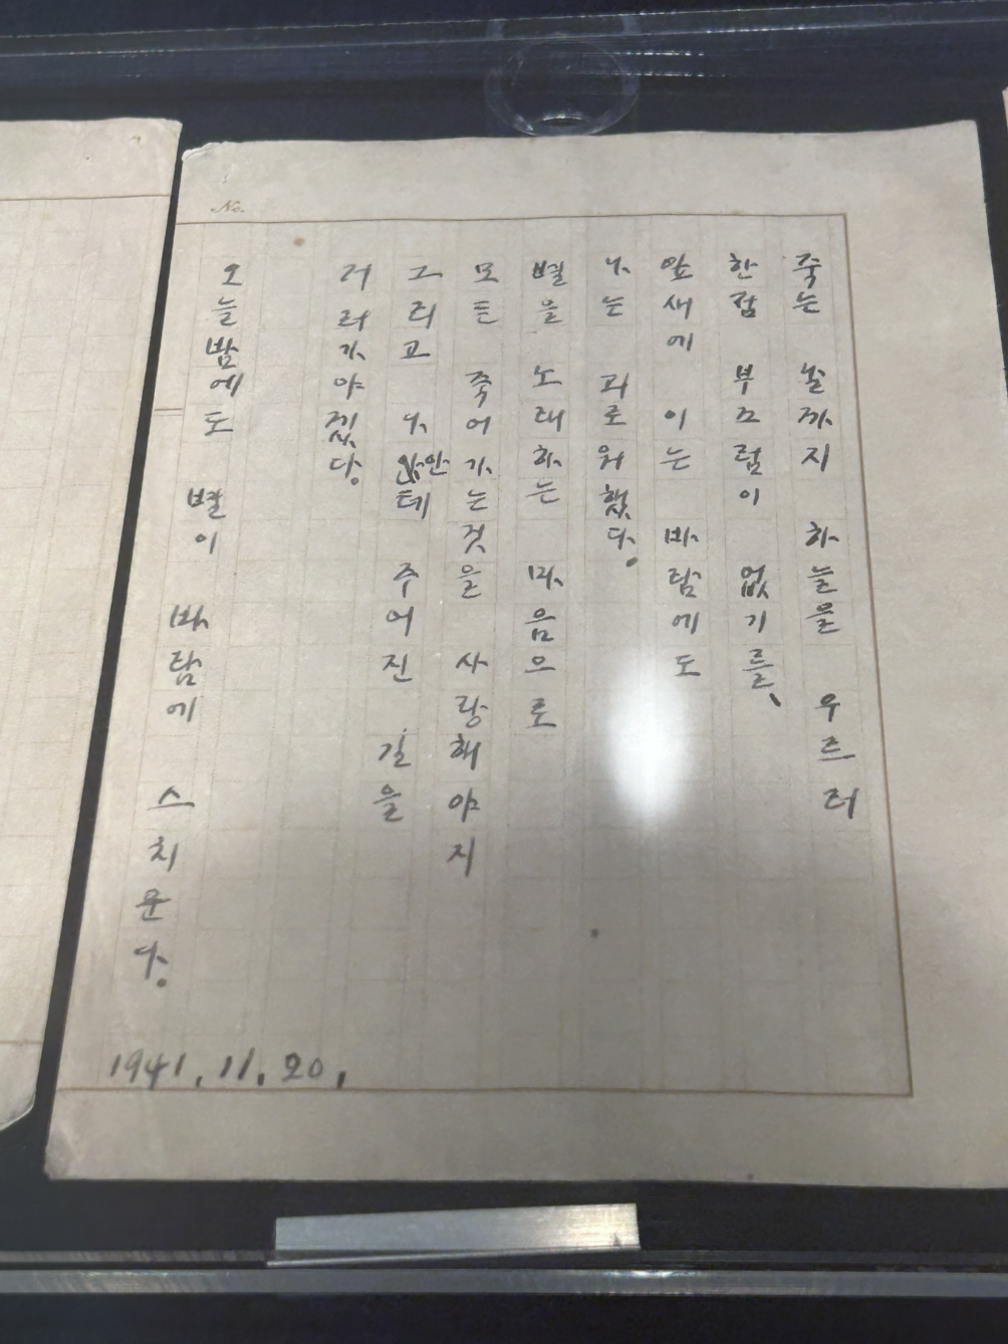 No.
죽는 날까지 하늘을 우르러
한점 부끄럼이 없기를、
잎새에 이는 바람에도
나는 괴로워했다.
별을 노래하는 마음으로
모든 죽어가는것을 사랑해야지
그리고 나안테 주어진 길을
거러가야겠다.
오늘밤에도 별이 바람에 스치운다.
1941. 11. 20.